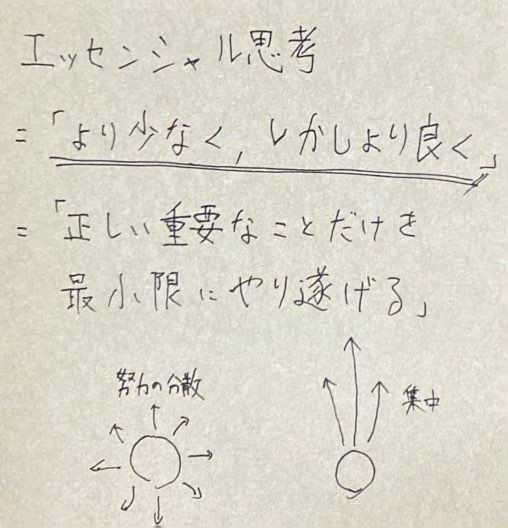 エッセンシャル思考
=「より少なく,しかしより良く」
=「正しい重要なことだけを
最小限にやり遂げる」
努力の分散
集中